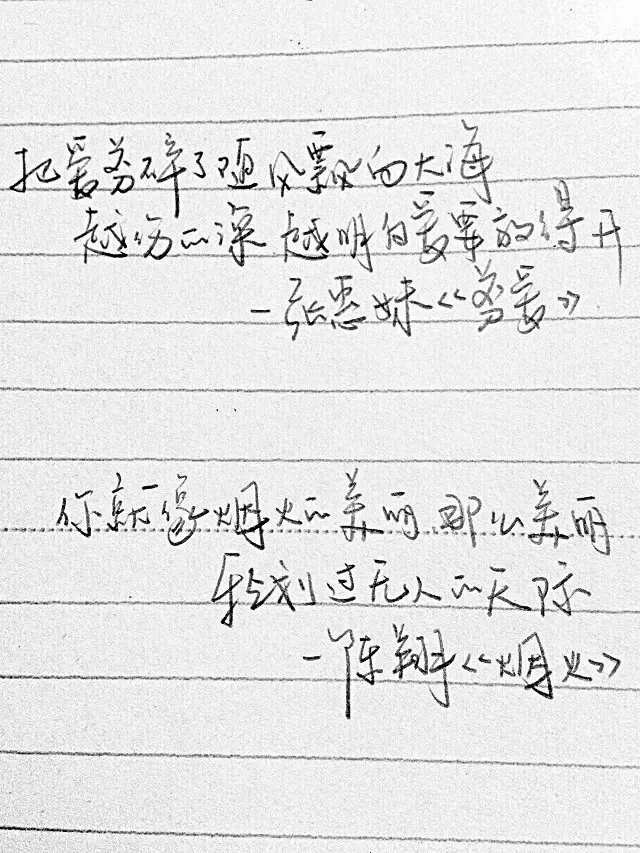 把爱剪碎了随风飘向大海
越伤的深 越明白爱要放得开
-张惠妹《剪爱》
你就像烟火的美丽 那么美丽
轻划过无人的天际
-陈翔《烟火》